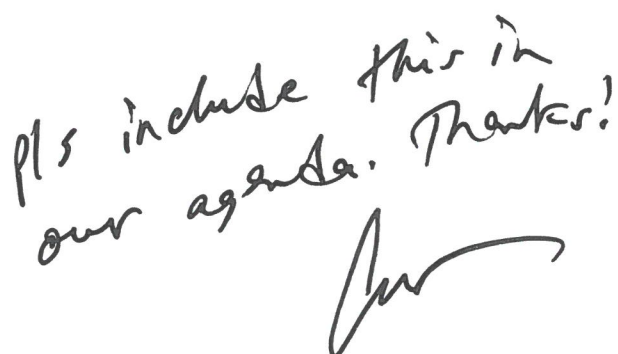 pls include this in
our agenda. Thanks!